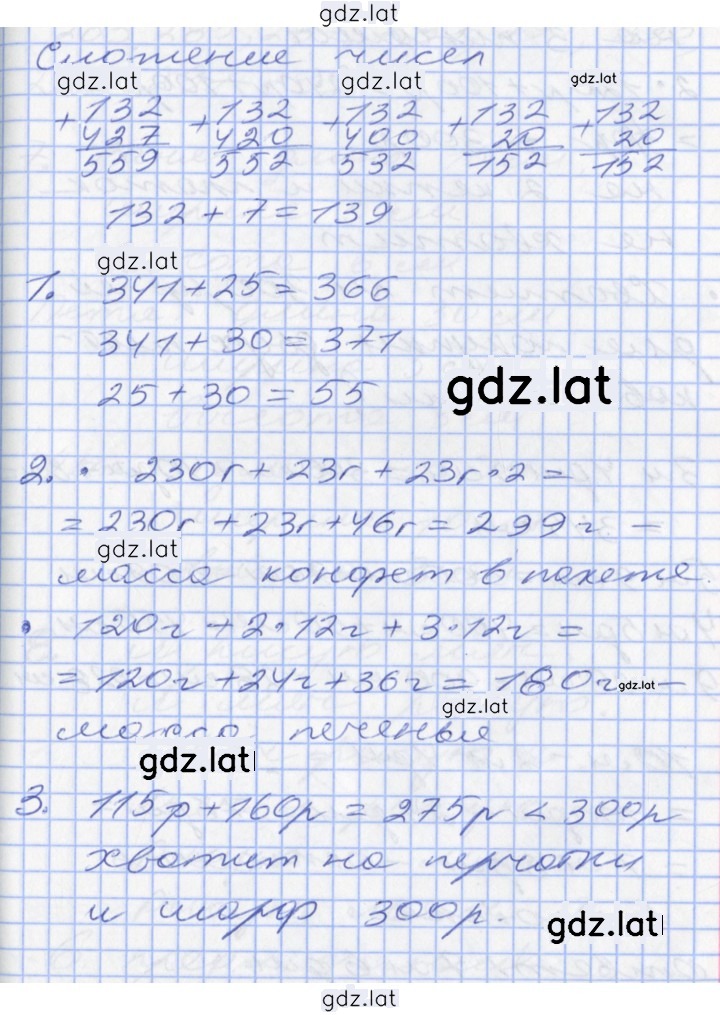 gdz.lat
Сложение чисел
gdz.lat gdz.lat gdz.lat
+132 +132 +132 +132 +132
427 420 400 20 20
559 552 532 152 152
132 + 7 = 139
gdz.lat
1. 341 + 25 = 366
341 + 30 = 371
25 + 30 = 55
gdz.lat
2. • 230г + 23г + 23г · 2 =
= 230г + 23г + 46г = 299г –
gdz.lat
масса конфет в пакете.
• 120г + 2 · 12г + 3 · 12г =
= 120г + 24г + 36г = 180г –
gdz.lat
gdz.lat
масса печенья
gdz.lat
3. 115р + 160р = 275р < 300р
хватит на перчатки
и шарф 300р.
gdz.lat
gdz.lat